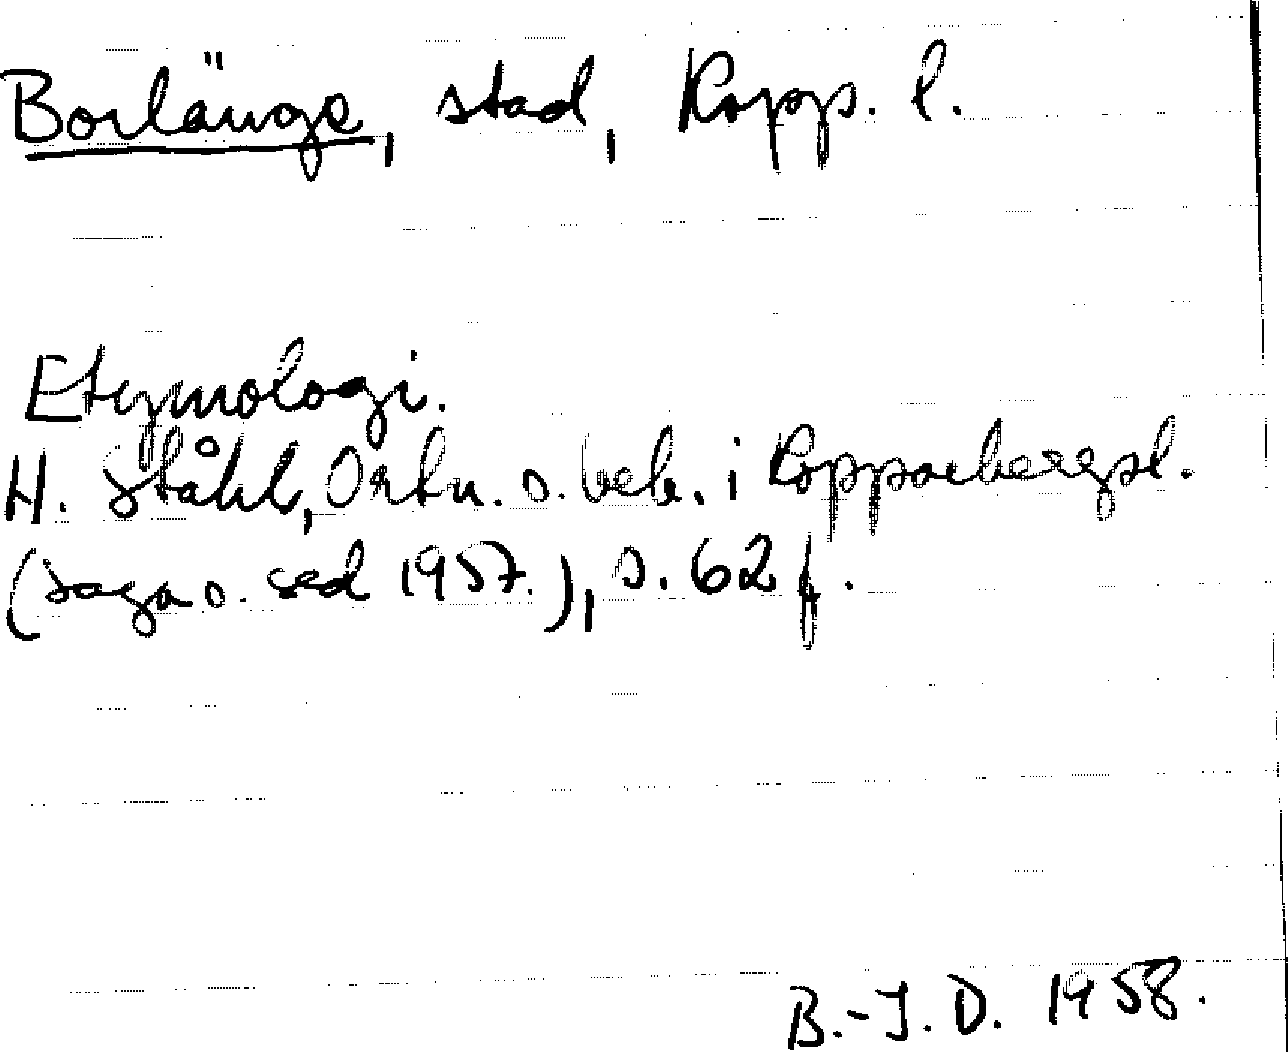 Borlänge, stad, Kopp. l.
Etymologi.
H. Ståhl, Ortn. o. beb. i Kopparbergsl.
(saga o. sed 1957.), s. 62 f.
B.-J. D. 1958.